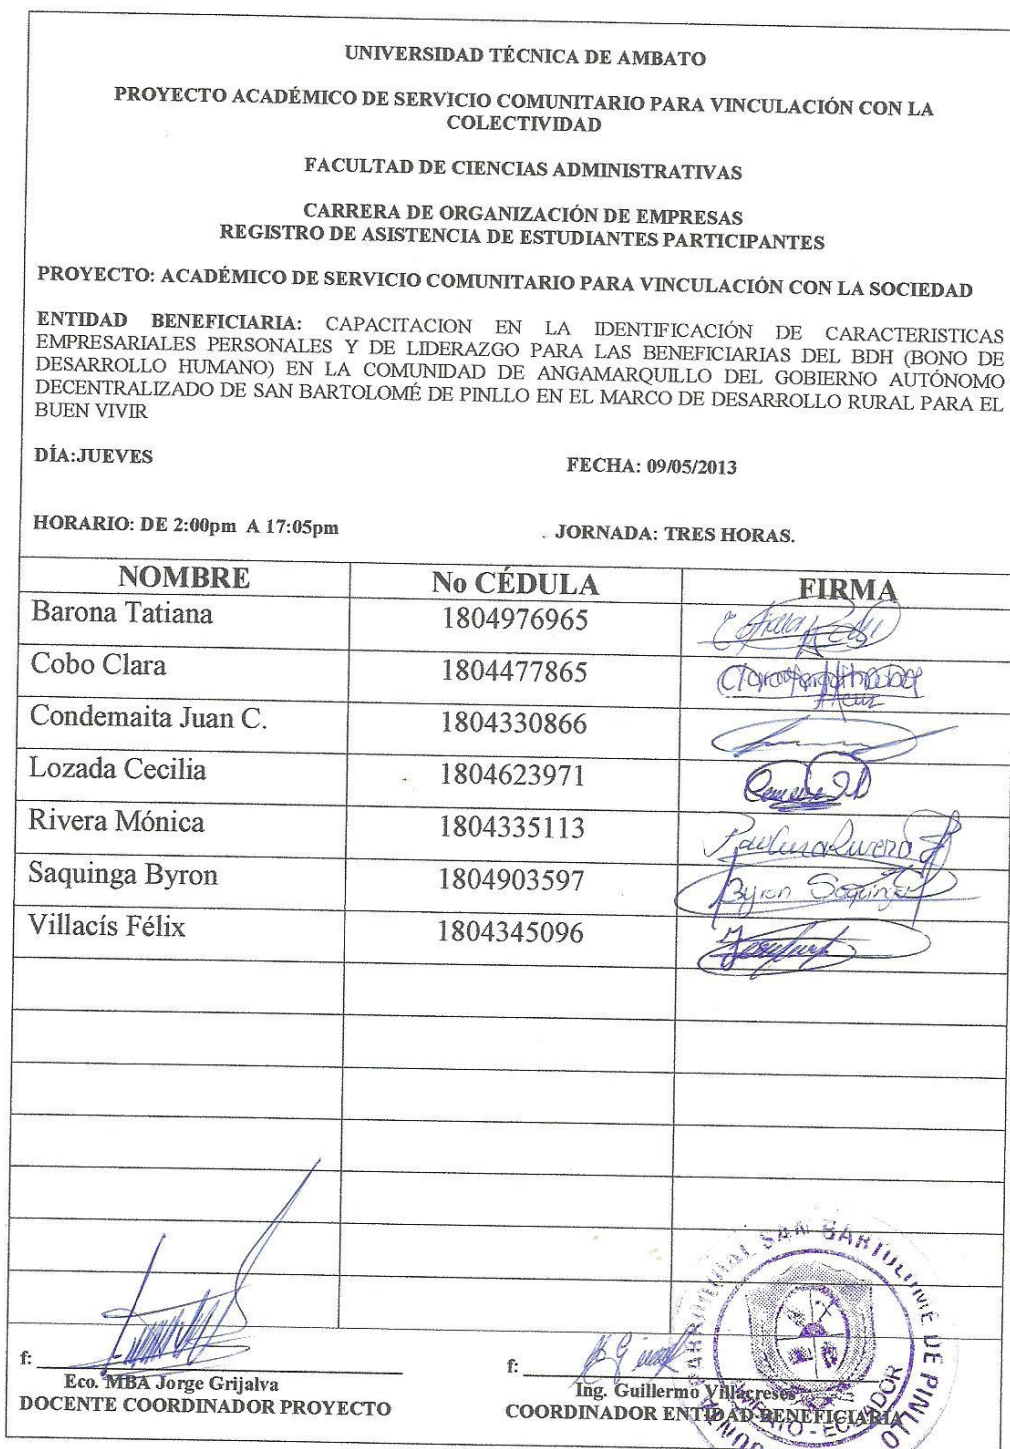 UNIVERSIDAD TÉCNICA DE AMBATO
PROYECTO ACADÉMICO DE SERVICIO COMUNITARIO PARA VINCULACIÓN CON LA
COLECTIVIDAD
FACULTAD DE CIENCIAS ADMINISTRATIVAS
CARRERA DE ORGANIZACIÓN DE EMPRESAS
REGISTRO DE ASISTENCIA DE ESTUDIANTES PARTICIPANTES
PROYECTO: ACADÉMICO DE SERVICIO COMUNITARIO PARA VINCULACIÓN CON LA SOCIEDAD
ENTIDAD BENEFICIARIA: CAPACITACION EN LA IDENTIFICACIÓN DE CARACTERISTICAS
EMPRESARIALES PERSONALES Y DE LIDERAZGO PARA LAS BENEFICIARIAS DEL BDH (BONO DE
DESARROLLO HUMANO) EN LA COMUNIDAD DE ANGAMARQUILLO DEL GOBIERNO AUTÓNOMO
DECENTRALIZADO DE SAN BARTOLOMÉ DE PINLLO EN EL MARCO DE DESARROLLO RURAL PARA EL
BUEN VIVIR
DÍA:JUEVES FECHA: 09/05/2013
HORARIO: DE 2:00pm A 17:05pm JORNADA: TRES HORAS.
NOMBRE No CÉDULA FIRMA
Barona Tatiana 1804976965
Cobo Clara 1804477865
Condemaita Juan C. 1804330866
Lozada Cecilia 1804623971
Rivera Mónica 1804335113
Saquinga Byron 1804903597 Byron Saquinga
Villacís Félix 1804345096
PARROQUIAL SAN BARTOLOME DE PINLLO
AMBATO - ECUADOR
f: f:
Eco. MBA Jorge Grijalva Ing. Guillermo Villacreses
DOCENTE COORDINADOR PROYECTO COORDINADOR ENTIDAD BENEFICIARIA